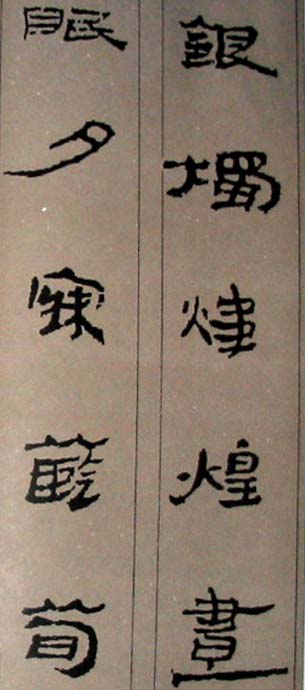 銀燭煒煌晝
眠夕寐藍筍